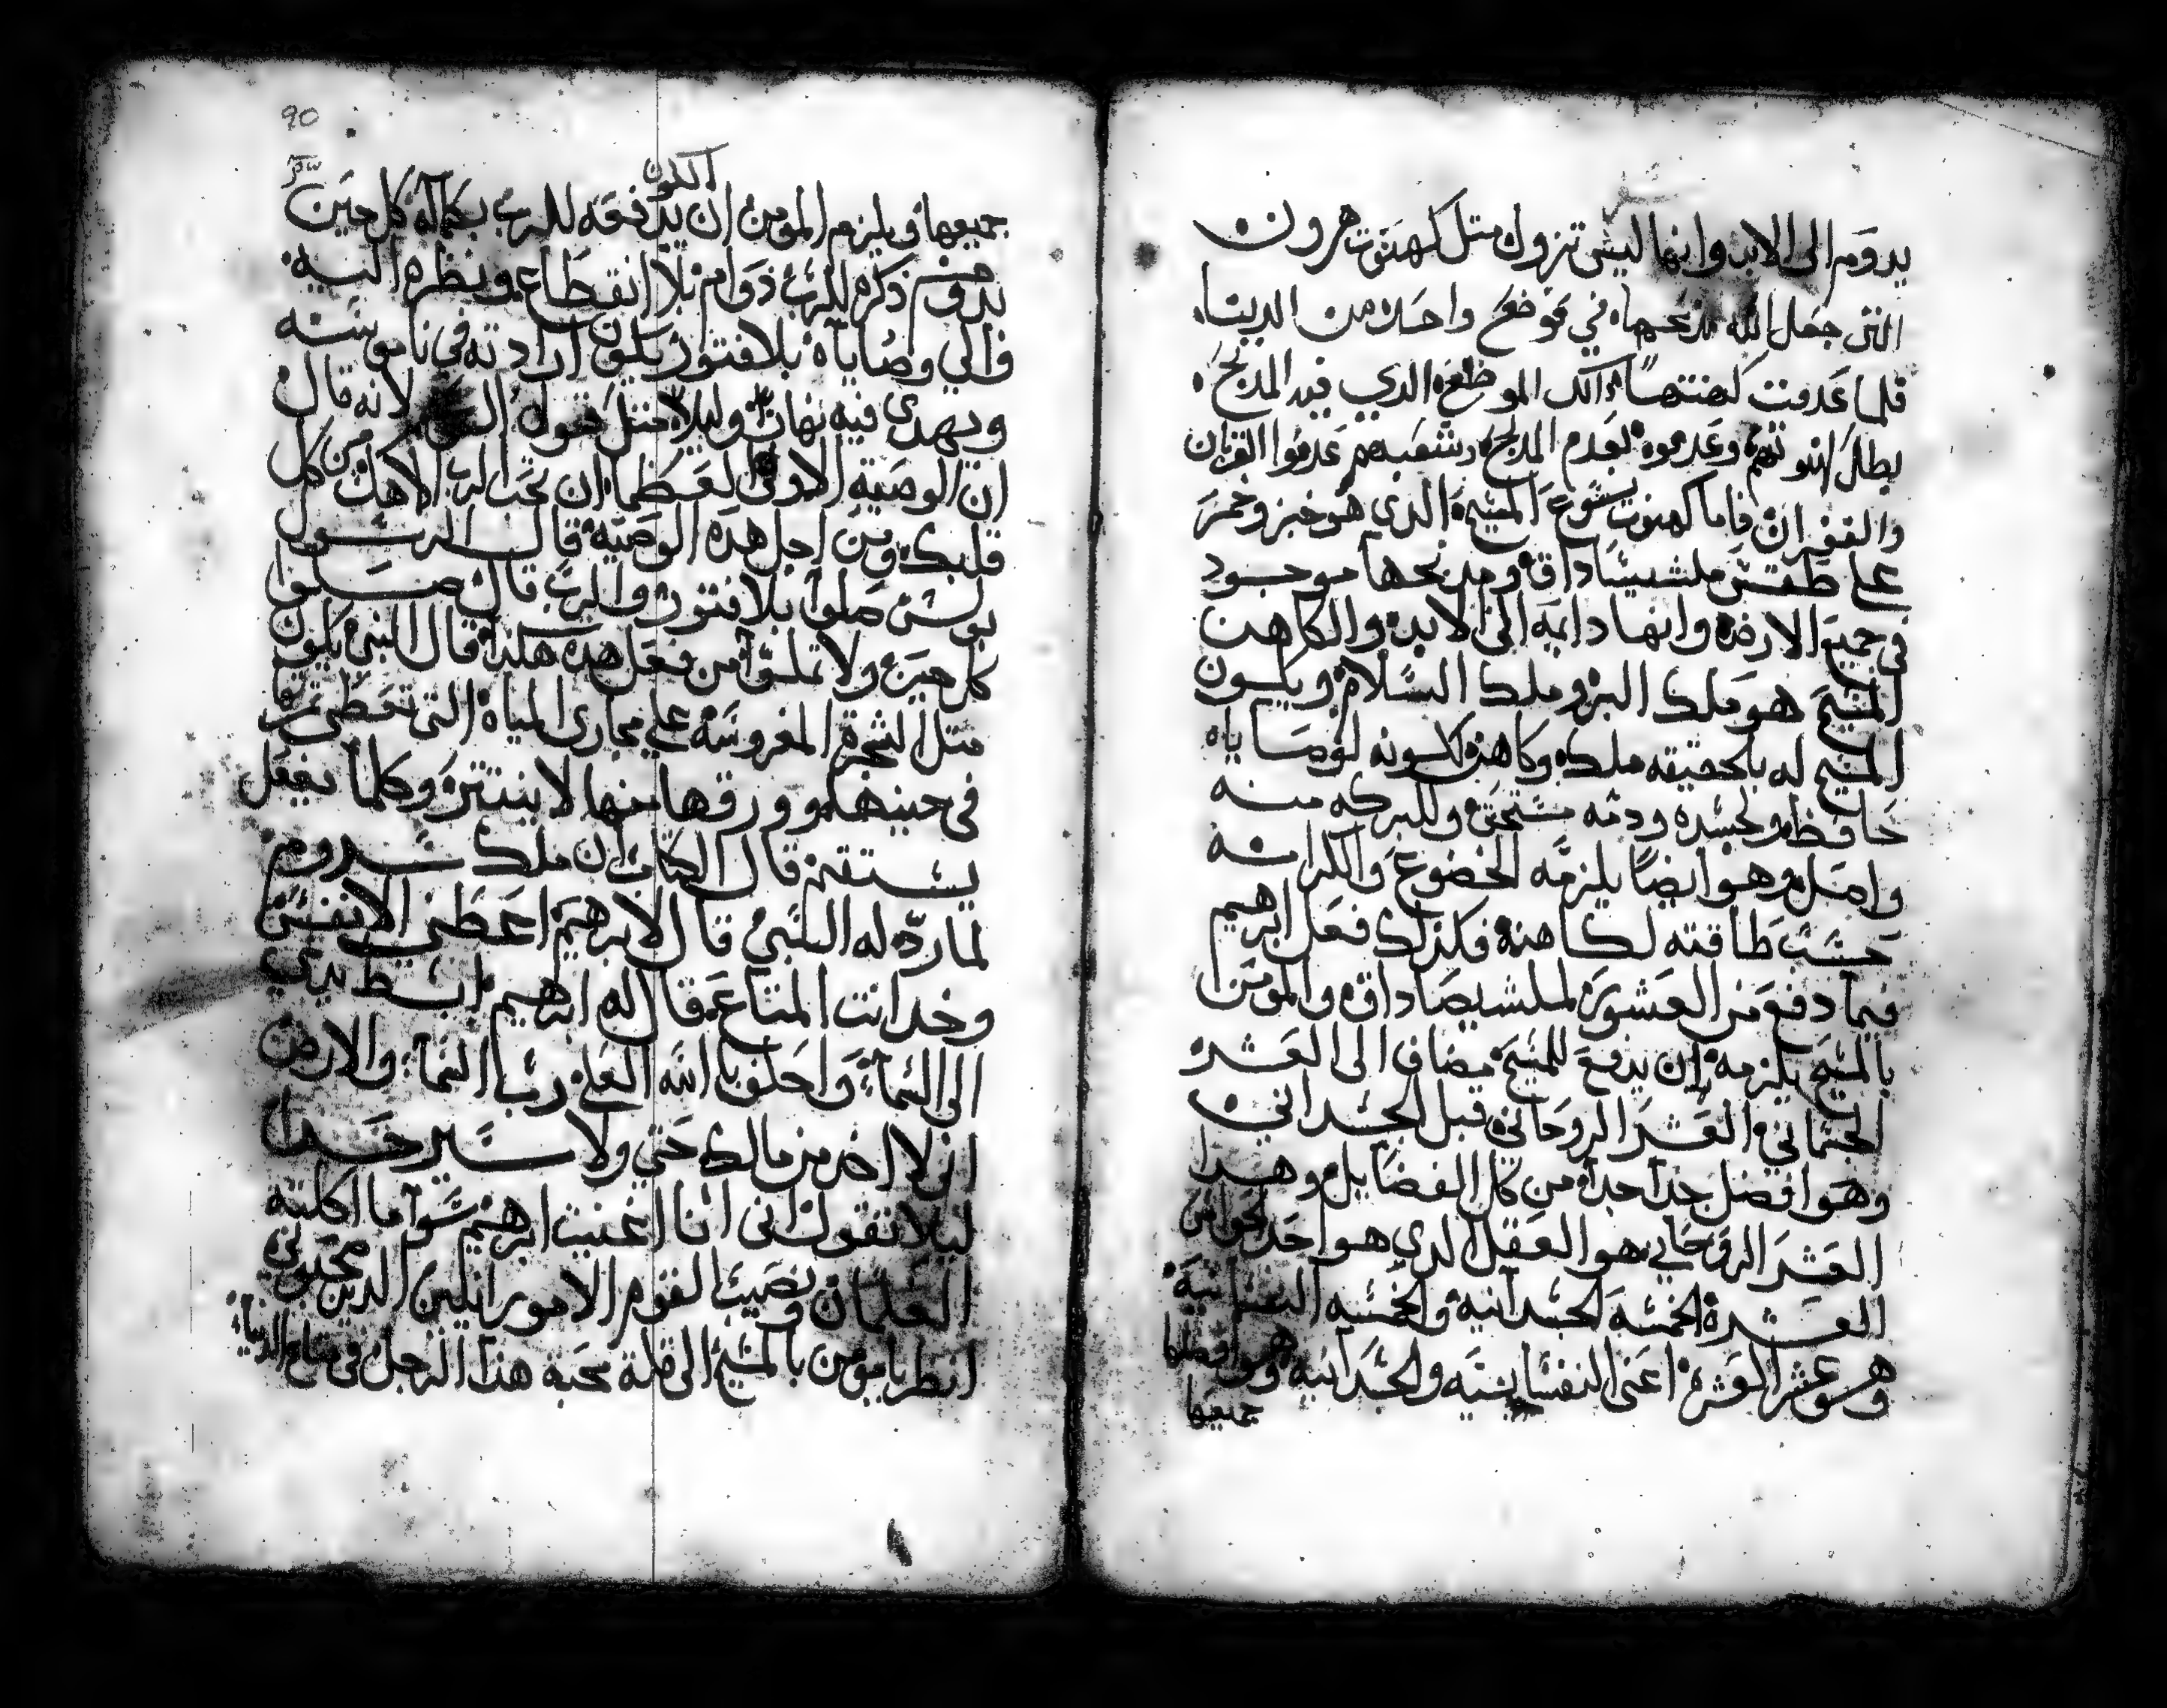 يدوم الى الابد وانها ليس تزول متل كهنوت هرون
التى جعل الله مدبحها في موضع واحد من الدنيا
فلما عدمت كهنتها دالك الموظع الدي فيه المدبح
بطل كهنوتهم وعدموه لعدم المدبح وشعبهم عدموا القربان
والغفران فاما كهنوت يسوع المسيح الدى هو خبز وخمر
على طقس ملشيساداق ومدبحها موجود
في جميع الارض وانها دايمه الى الابد والكاهن
المسيح هو ملك البر وملك السلام ويكون
المسيح له بالحقيقه ملك وكاهن لكونه لوصاياه
حافظ ولجسده ودمه مستحق وللبركه منه
واصل وهو ايضًا يلزمه الخضوع والكرامه
حسب طاقته لكاهنه فكدلك فعل ابرهيم
فيما دفع من العشور لملشيصاداق والمومن
بالمسيح يلزمه ان يدفع للمسيح مضاف الى العشر
الجسمانى العشر الروحانى قبل الجسدانى
وهو افضل جدا جدا من كل الفضايل وهدا
العشر الروحاني هو العقل الدي هو احد الحواس
العشره الخمسه الجسدانيه والخمسه النفسانيه
وهو عشر العشره اعنى النفسانيه والجسدانيه وهو افضلها
جميعها
90
جميعها فيلزم المومن ان يدفعه للرب بكماله كل حين
ليكون
يدوم دكره للرب دوام بلا انقطاع ونظره اليه
والي وصاياه بلا فتور يكون ارادته في ناموسه
ويهدى فيه نهار وليلا متل قول لانه قال
ان الوصيه الاولى العظما ان تحب الرب الاهك من كل
قلبك ومن اجل هده الوصيه قال الرسول
بولس صلوا بلا فتور والرب قال صلوا
كل حين ولا تملوا من فعل هده هكدا قال النبى يكون
متل الشجره المغروسه على مجارى المياه التى تعطى ثمرتها
فى حينها وورقها منها لا ينتتر وكلما يفعل
يستقيم قال الكتاب ان ملك سدوم
لما رد له السبي قال لابرهيم اعطنى الانفس
وخد انت المتاع قال له ابرهيم ابسط يدي
الى السما واحلف بالله العلى رب السما والارض
انى لا اخد من مالك حتى ولا سير حدا
ليلا تقول انى انا اغنيت ابرهيم سوا ما اكلته
الغلمان ونصيب القوم الامورانيين الدين صحبونى
انظر يا مومن بالمسيح الى قلة محبة هدا الرجل فى متاع الدنيا